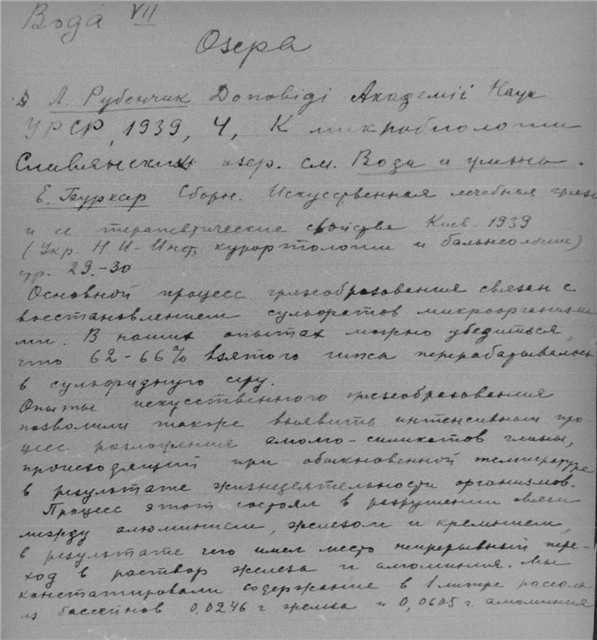 Вода VII
Озера
Л. Рубенчик Доповіді Академії Наук
УРСР, 1939, 4, К микробиологии
Славянских озер. см. Вода и
Е. Бурксер Сборн. Искусственная лечебная грязь
и ее терапевтические свойства Киев. 1939
(Укр Н И-Инст, курортологии и бальнеологии)
стр. 29-30
Основной процесс грязеобразования связан с
восстановлением сульфатов микроорганизма
ми. В наших опытах можно убедиться,
что 62-66% взятого гипса перерабатывалось
в сульфидную серу.
Опыты искусственного грязеобразования
позволили также выявить интенсивный про-
цесс разложения алюмо-силикатов глины,
происходящий при обыкновенной температуре
в результате жизнедеятельности организмов.
Процесс этот состоял в разрушении связи
между алюминием, железом и кремнием,
в результате чего имел место непрерывный пере-
ход в раствор железа и алюминия. Мы
констатировали содержание в 1 литре рассола
из бассейнов 0,0246 г железа и 0,0605 г. алюминия